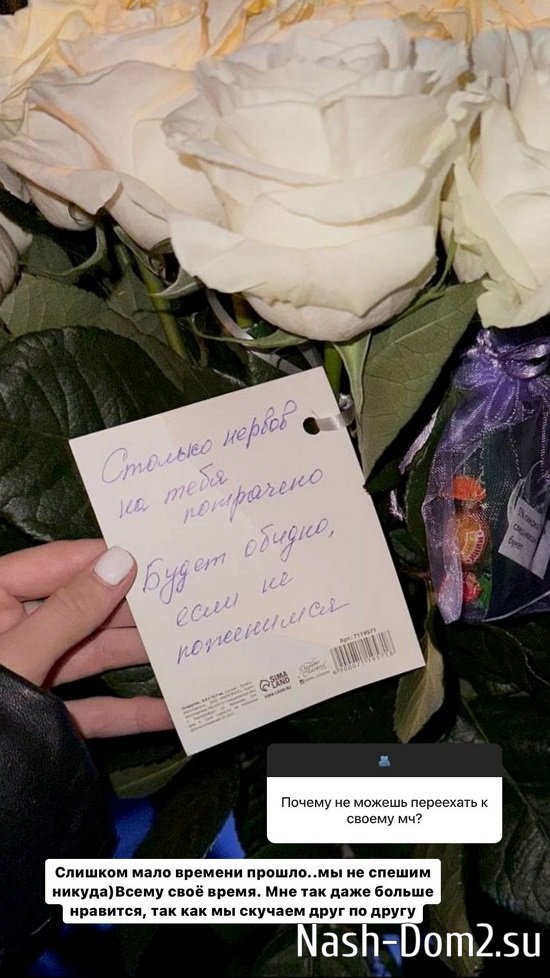 Столько нервов
на тебя
потрачено
Будет обидно,
если не
поженимся
Арт.: 7119571
SIMA
LAND
SIMA-LAND.RU
Почему не можешь переехать к
своему мч?
Слишком мало времени прошло..мы не спешим
никуда)Всему своё время. Мне так даже больше
нравится, так как мы скучаем друг по другу
Nash-Dom2.su